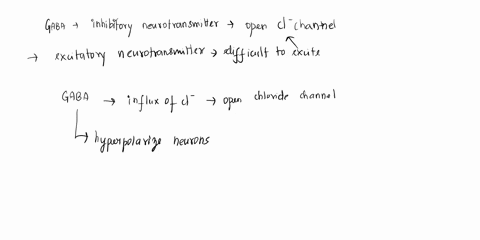 GABA → inhibitory neurotransmitter → open Cl⁻ channel
→ exutatory neurotransmitter → difficult to exute
GABA → influx of Cl⁻ → open chloride channel
↳ hyperpolarize neurons